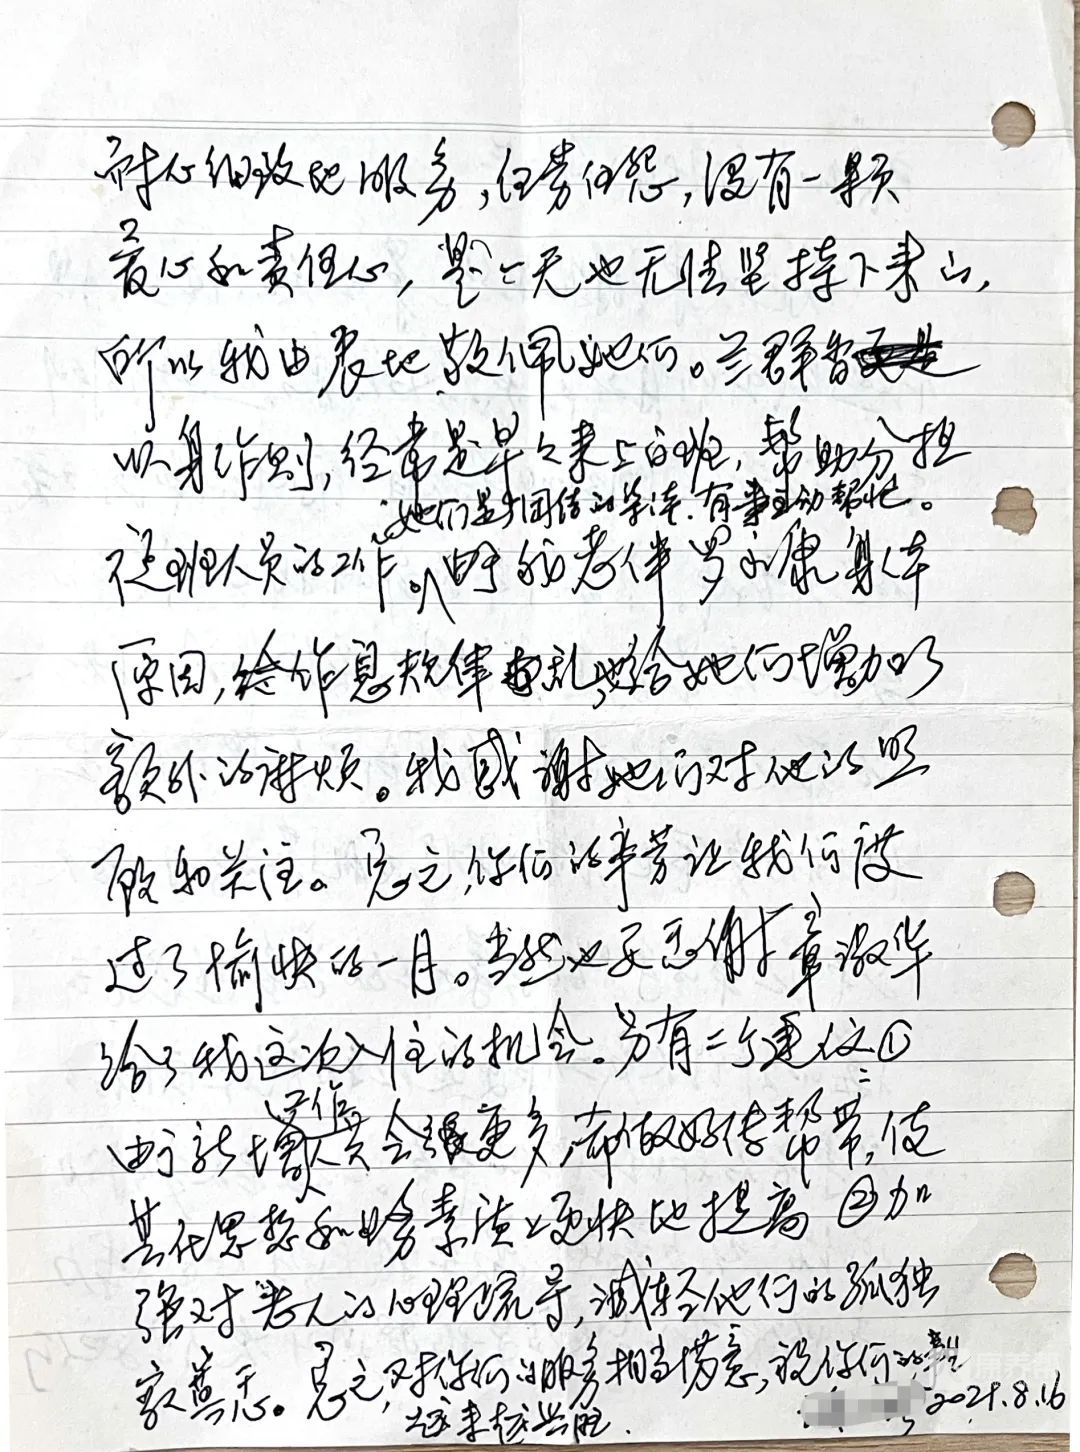 耐心细致地服务,任劳任怨,没有一颗
爱心和责任心,是一天也无法坚持下来的,
所以我由衷地敬佩她们。兰群
以身作则,经常是早早来上的班,帮助分担
她们是个团结的集体.有事主动帮忙。
夜班人员的工作。由于我老伴罗永康身体
原因,作息规律乱,也给她们增加了
额外的麻烦。我感谢她们对他的照
顾和关注。总之,你们的辛劳让我们度
过了愉快的一月。当然也要感谢章淑华
给了我这次入住的机会。另有二个建议:①
由于新增人员会更多,希做好传帮带,使
其在思想和业务素质上更快地提高②加
强对老人的心理疏导,减轻他们的孤独
寂寞感。总之,对你们的服务相当满意,祝你们的
越来越兴旺.
2021.8.16